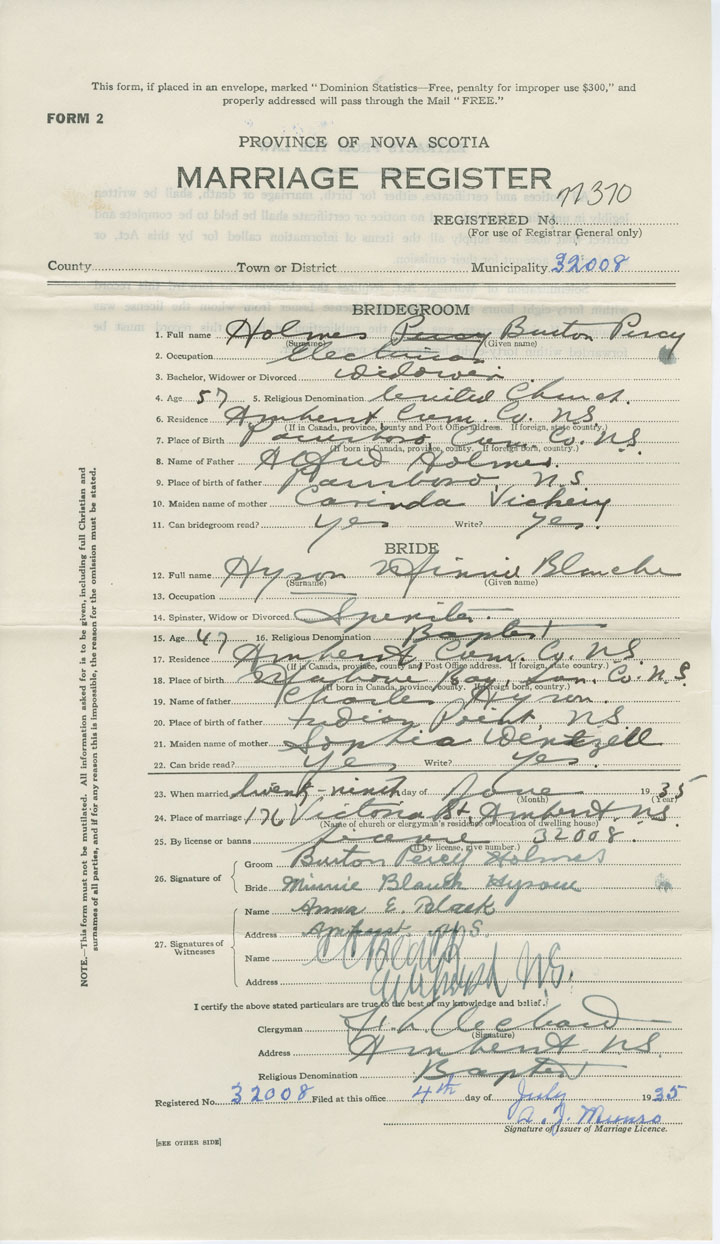 This form, if placed in an envelope, marked "Dominion Statistics—Free, penalty for improper use $300," and
properly addressed will pass through the Mail "FREE."
FORM 2
PROVINCE OF NOVA SCOTIA
MARRIAGE REGISTER
370
REGISTERED No.
(For use of Registrar General only)
County Town or District Municipality 32008
BRIDEGROOM
1. Full name Holmes Percy Burton Percy
(Surname) (Given name)
2. Occupation Electrician
3. Bachelor, Widower or Divorced Widower
4. Age 57 5. Religious Denomination United Church.
6. Residence Amherst Cum. Co. N.S.
(If in Canada, province, county and Post Office address. If foreign, state country.)
7. Place of Birth Parrsboro, Cum. Co. N.S.
(If born in Canada, province, county. If foreign born, country.)
8. Name of Father Alfred Holmes.
9. Place of birth of father Parrsboro, N.S.
10. Maiden name of mother Vickery
11. Can bridegroom read? Yes Write? Yes.
BRIDE
12. Full name Hyson Minnie Blanche
(Surname) (Given name)
13. Occupation
14. Spinster, Widow or Divorced Spinster.
15. Age 47 16. Religious Denomination Baptist
17. Residence Amherst Cum. Co. N.S.
(If in Canada, province, county and Post Office address. If foreign, state country.)
18. Place of birth Mahone Bay, Lun. Co. N.S.
(If born in Canada, province, county. If foreign born, country.)
19. Name of father Charles Hyson.
20. Place of birth of father Indian Point, N.S.
21. Maiden name of mother Sophia Wentzell
22. Can bride read? Yes Write? Yes.
23. When married twenty-ninth day of June 1935
(Month) (Year)
24. Place of marriage 176 Victoria St. Amherst. N.S.
(Name of church or clergyman's residence or location of dwelling house)
25. By license or banns license 32008.
(If by license, give number.)
26. Signature of Groom Burton Percy Holmes
Bride Minnie Blanch
27. Signatures of Witnesses
Name Anna E. Black
Address Amherst N.S.
Name
Address Amherst N.S.
I certify the above stated particulars are true to the best of my knowledge and belief.
Clergyman
(Signature)
Address Amherst N.S.
Religious Denomination Baptist
Registered No. 32008 Filed at this office 4th day of July 1935
A. J. Munro
Signature of Issuer of Marriage Licence.
[SEE OTHER SIDE]
NOTE.—This form must not be mutilated. All information asked for is to be given, including full Christian and
surnames of all parties, and if for any reason this is impossible, the reason for the omission must be stated.